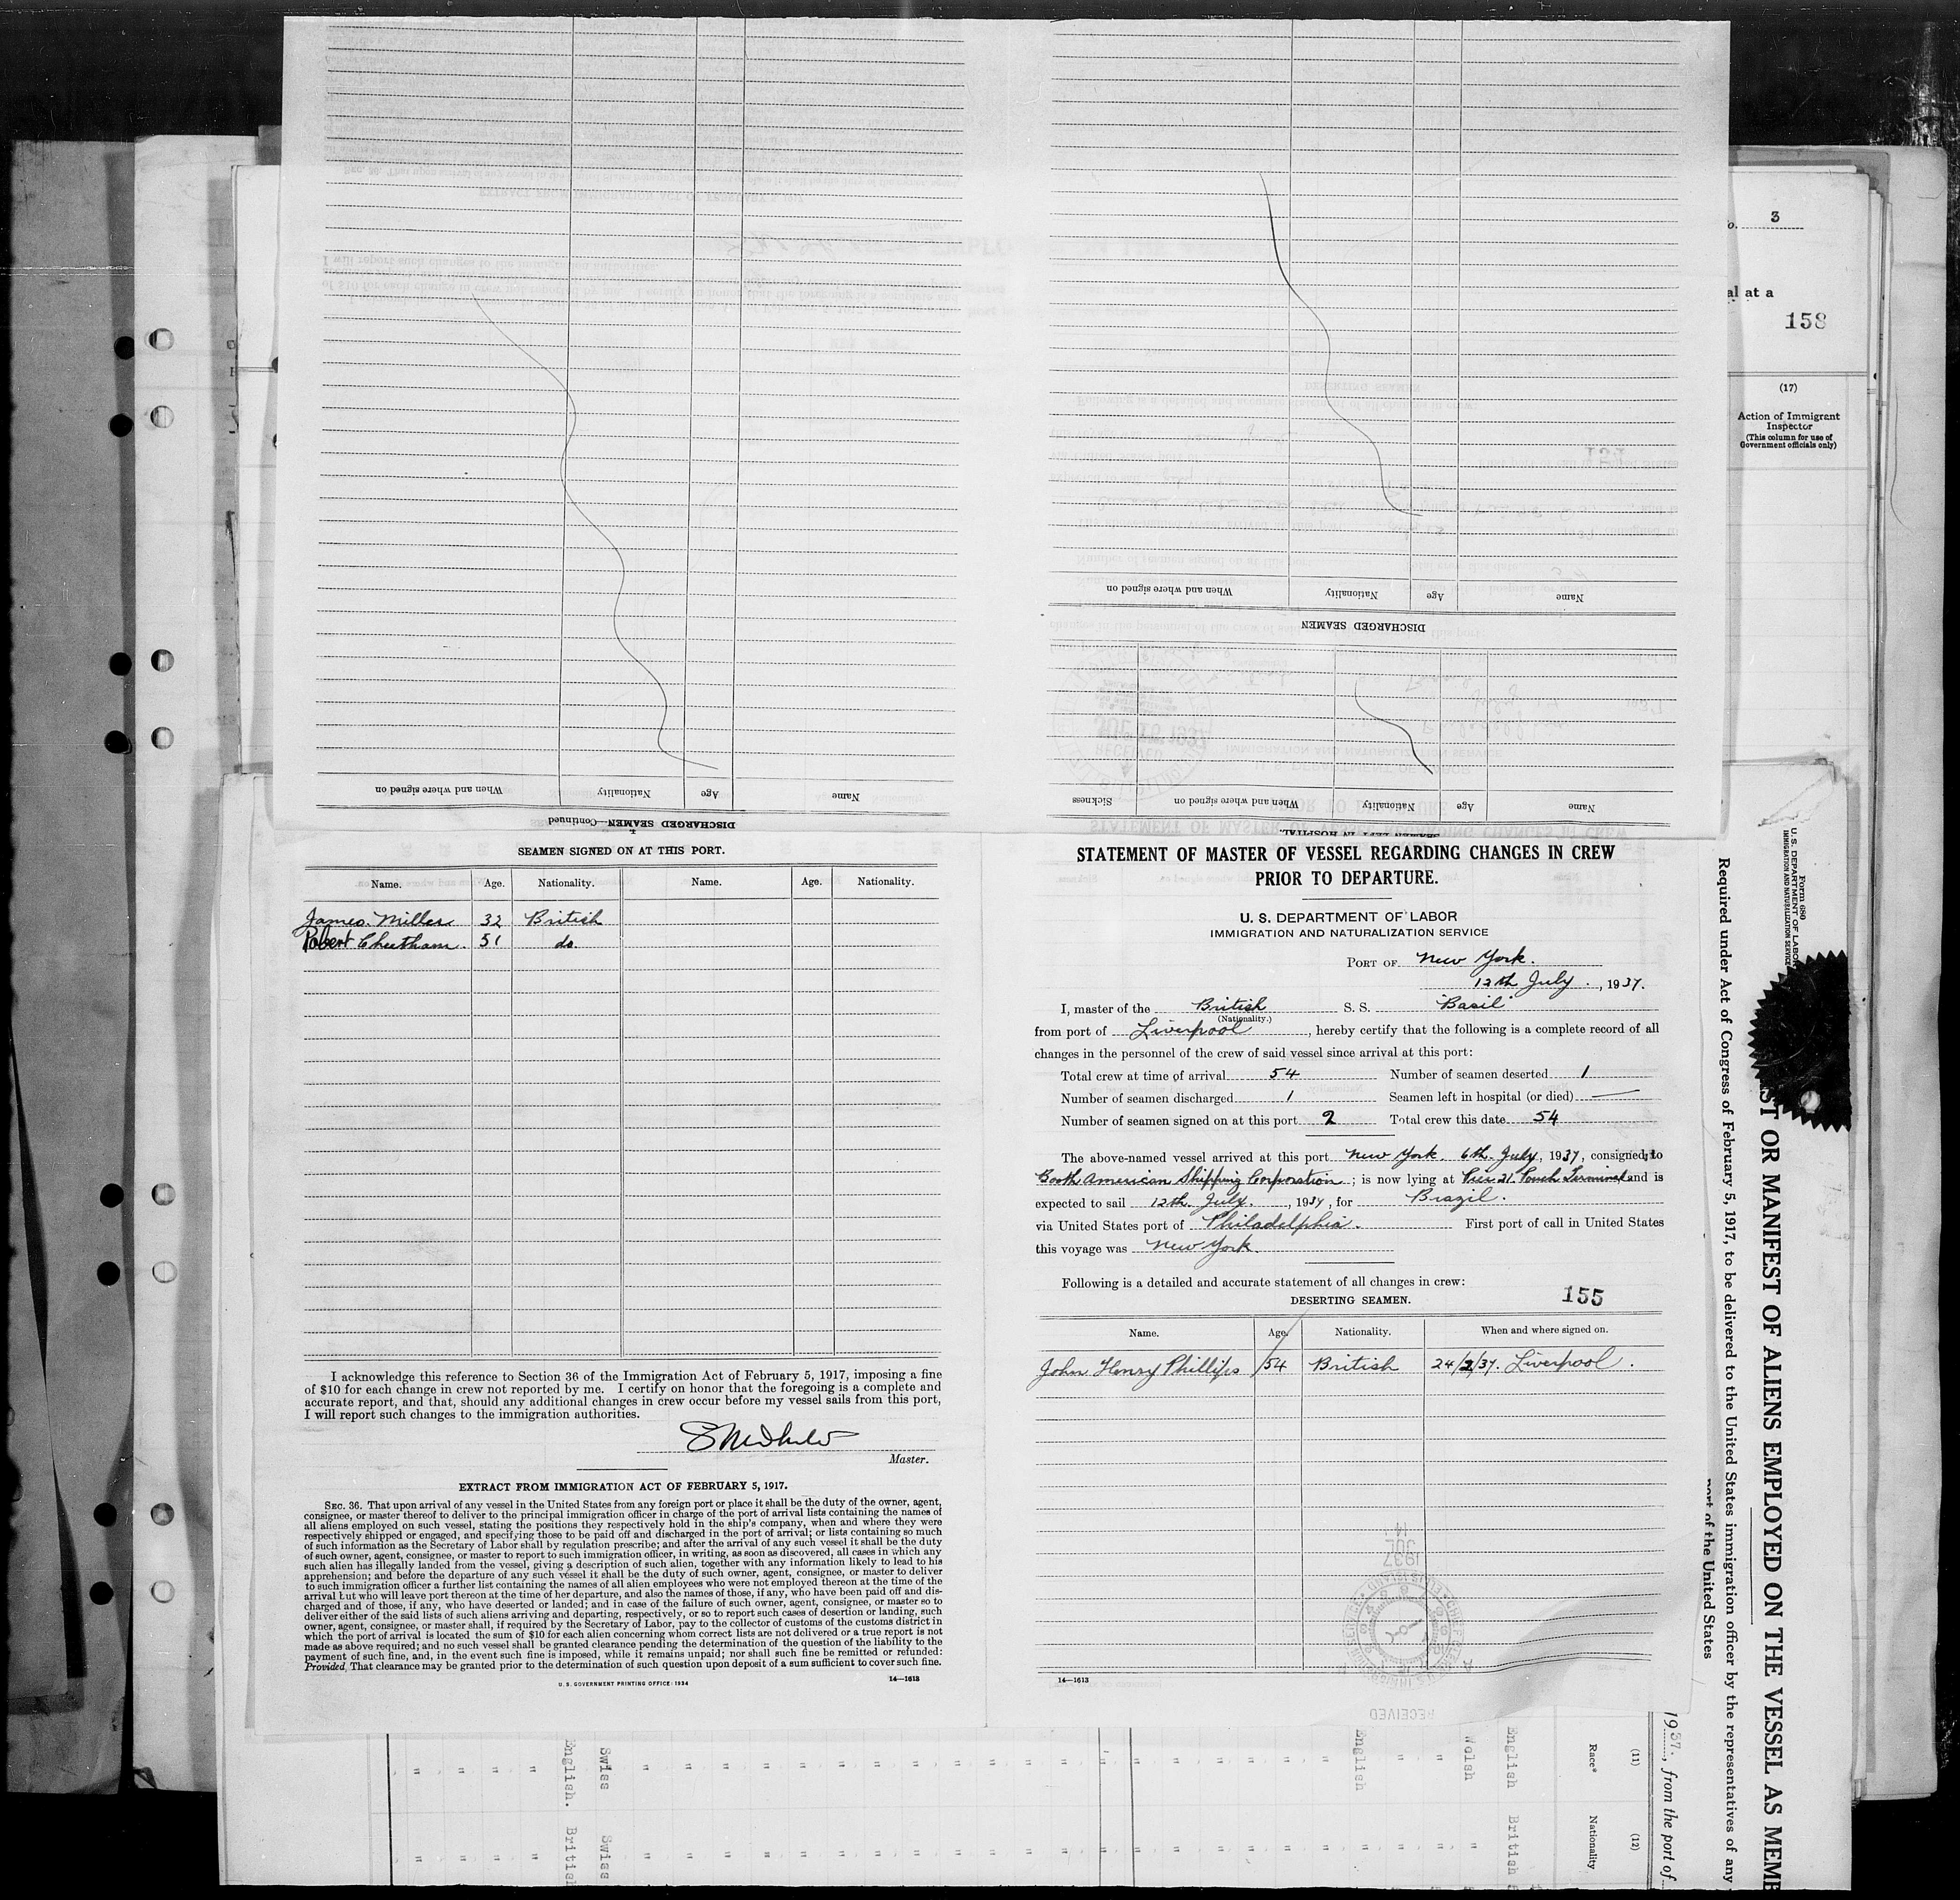 o. 3
al at a
158
(17)
Action of Immigrant
Inspector
(This column for use of
Government officials only)
When and where signed on
Nationality
Age
Name
DISCHARGED SEAMEN
Sickness
When and where signed on
Nationality
Age
Name
SEAMEN LEFT IN HOSPITAL.
When and where signed on
Nationality
Age
Name
DISCHARGED SEAMEN—Continued
SEAMEN SIGNED ON AT THIS PORT.
Name. Age. Nationality. Name. Age. Nationality.
James Miller 32 British
Robert Cheetham. 51 do.
I acknowledge this reference to Section 36 of the Immigration Act of February 5, 1917, imposing a fine
of $10 for each change in crew not reported by me. I certify on honor that the foregoing is a complete and
accurate report, and that, should any additional changes in crew occur before my vessel sails from this port,
I will report such changes to the immigration authorities.
Master.
EXTRACT FROM IMMIGRATION ACT OF FEBRUARY 5, 1917.
SEC. 36. That upon arrival of any vessel in the United States from any foreign port or place it shall be the duty of the owner, agent,
consignee, or master thereof to deliver to the principal immigration officer in charge of the port of arrival lists containing the names of
all aliens employed on such vessel, stating the positions they respectively hold in the ship's company, when and where they were
respectively shipped or engaged, and specifying those to be paid off and discharged in the port of arrival; or lists containing so much
of such information as the Secretary of Labor shall by regulation prescribe; and after the arrival of any such vessel it shall be the duty
of such owner, agent, consignee, or master to report to such immigration officer, in writing, as soon as discovered, all cases in which any
such alien has illegally landed from the vessel, giving a description of such alien, together with any information likely to lead to his
apprehension; and before the departure of any such vessel it shall be the duty of such owner, agent, consignee, or master to deliver
to such immigration officer a further list containing the names of all alien employees who were not employed thereon at the time of the
arrival but who will leave port thereon at the time of her departure, and also the names of those, if any, who have been paid off and dis-
charged and of those, if any, who have deserted or landed; and in case of the failure of such owner, agent, consignee, or master so to
deliver either of the said lists of such aliens arriving and departing, respectively, or so to report such cases of desertion or landing, such
owner, agent, consignee, or master, shall, if required by the Secretary of Labor, pay to the collector of customs of the customs district in
which the port of arrival is located the sum of $10 for each alien concerning whom correct lists are not delivered or a true report is not
made as above required; and no such vessel shall be granted clearance pending the determination of the question of the liability to the
payment of such fine, and, in the event such fine is imposed, while it remains unpaid; nor shall such fine be remitted or refunded:
Provided, That clearance may be granted prior to the determination of such question upon deposit of a sum sufficient to cover such fine.
U. S. GOVERNMENT PRINTING OFFICE: 1934 14—1613
STATEMENT OF MASTER OF VESSEL REGARDING CHANGES IN CREW
PRIOR TO DEPARTURE.
U. S. DEPARTMENT OF LABOR
IMMIGRATION AND NATURALIZATION SERVICE
PORT OF New York.
12th July., 1937.
I, master of the British S. S. "Basil"
(Nationality.)
from port of Liverpool, hereby certify that the following is a complete record of all
changes in the personnel of the crew of said vessel since arrival at this port:
Total crew at time of arrival 54 Number of seamen deserted 1
Number of seamen discharged 1 Seamen left in hospital (or died) —
Number of seamen signed on at this port 2 Total crew this date 54
The above-named vessel arrived at this port New York 6th July, 1937, consigned to
Booth American Shipping Corporation; is now lying at Pier 21. Pouch Terminal and is
expected to sail 12th July., 1937, for Brazil.
via United States port of Philadelphia. First port of call in United States
this voyage was New York.
Following is a detailed and accurate statement of all changes in crew:
DESERTING SEAMEN. 155
Name. Age. Nationality. When and where signed on.
John Henry Phillips 54 British 24/2/37. Liverpool.
14—1613
RECEIVED
1937
JUL
14
Form 680
U. S. DEPARTMENT OF LABOR
IMMIGRATION AND NATURALIZATION SERVICE
ST OR MANIFEST OF ALIENS EMPLOYED ON THE VESSEL AS MEMB
Required under Act of Congress of February 5, 1917, to be delivered to the United States immigration officer by the representatives of any
port of the United States
1937., from the port of
(11) (12)
Race* Nationality
English British
Welsh "
English
Swiss Swiss
English. British